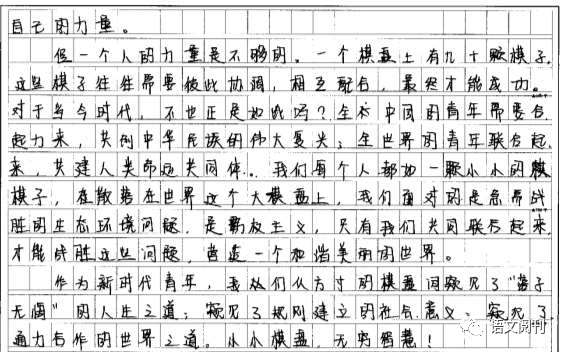 自己的力量。
但一个人的力量是不够的。一个棋盘上有几十颗棋子，
这些棋子往往需要彼此协调，相互配合，最终才能成功。
对于当今时代，不也正是如此吗？全体中国的青年需要合
起力来，共创中华民族的伟大复兴；全世界的青年联合起
来，共建人类命运共同体。我们每个人都如一颗小小的棋
棋子，在散落在世界这个大棋盘上，我们面对的是急需战
胜的生态环境问题，是霸权主义，只有我们共同联合起来
才能战胜这些问题，营造一个和谐美丽的世界。
作为新时代青年，我们从方寸的棋盘间窥见了“落子
无悔”的人生之道；窥见了规则建立的社会意义；窥见了
通力合作的世界之道。小小棋盘，无穷智慧！
语文阅刊